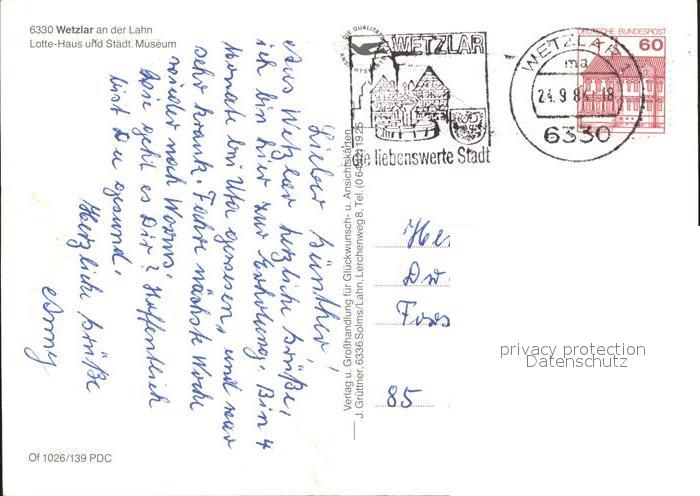 6330 Wetzlar an der Lahn
Lotte-Haus und Städt. Museum
Lieber Günther!
Aus Wetzlar herzliche Grüße,
ich bin hier zur Erholung. Bin 4
Monate bei Uta gewesen, und war
sehr krank. Fahre nächste Woche
wieder nach Worms.
Wie geht es Dir? Hoffentlich
bist Du gesund.
Herzliche Grüße
Anny
Of 1026/139 PDC
Verlag u. Großhandlung für Glückwunsch- u. Ansichtskarten
J. Grüttner, 6336 Solms/Lahn, Lerchenweg 8, Tel. (0 64 42) 19 25
DIE QUALITÄTS
ANSICHTSKARTE
WETZLAR
die liebenswerte Stadt
WETZLAR 1
ma
24.9.84-18
6330
DEUTSCHE BUNDESPOST
60
He
Dr.
Fors
85
privacy protection
Datenschutz